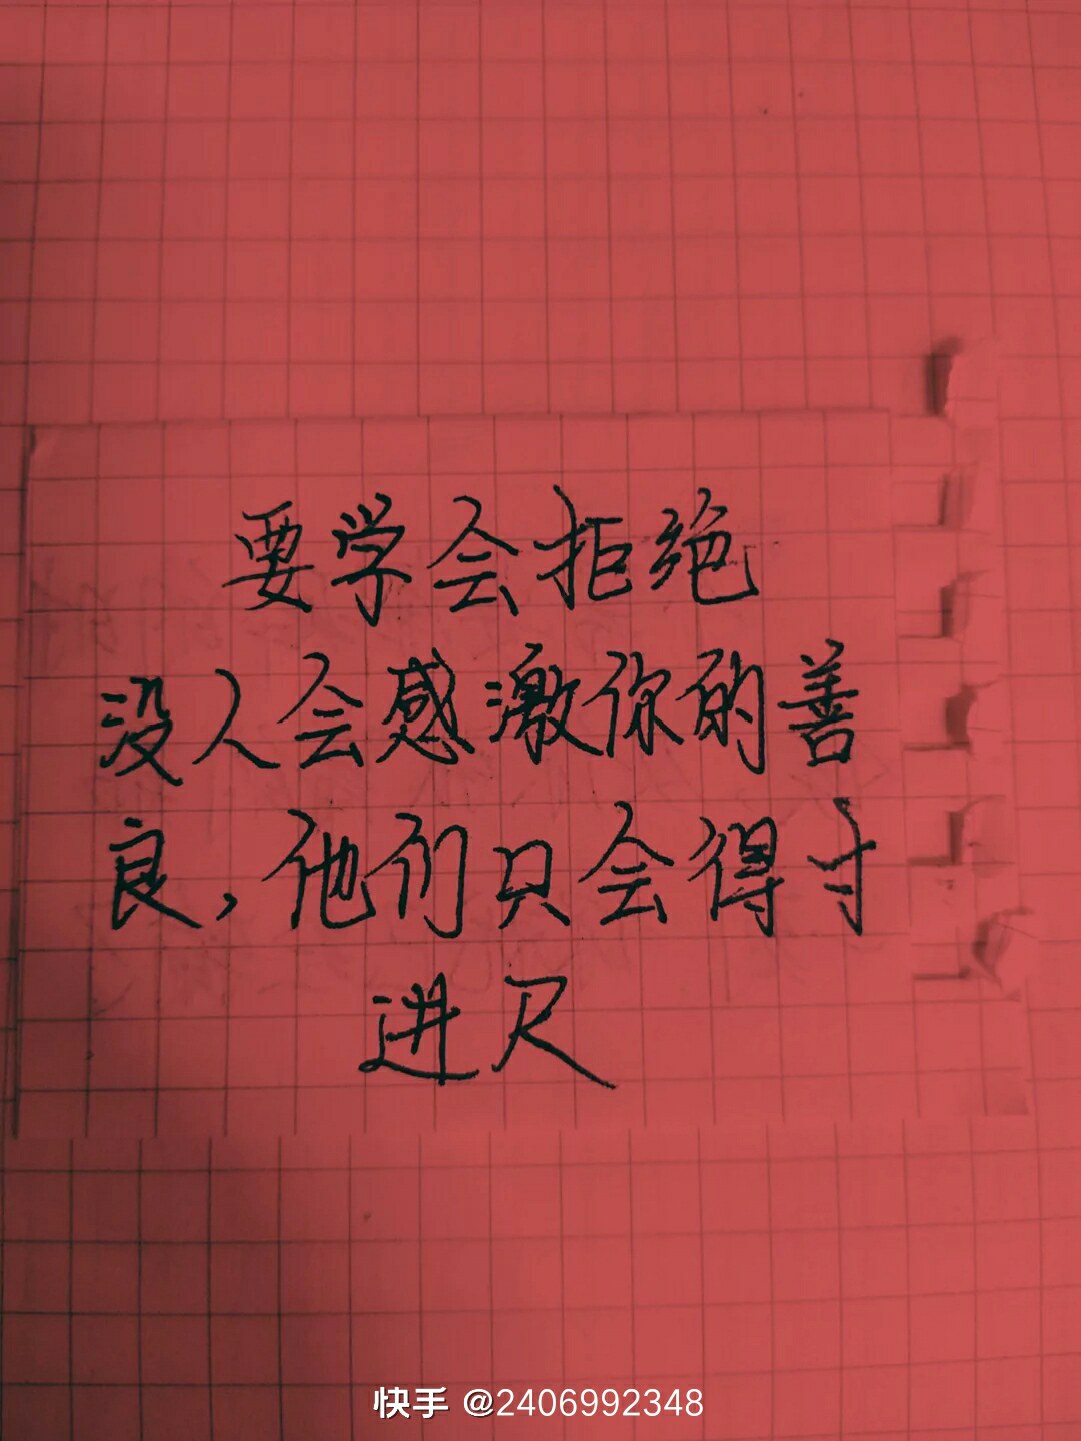 要学会拒绝
没人会感激你的善
良,他们只会得寸
进尺
快手 @2406992348